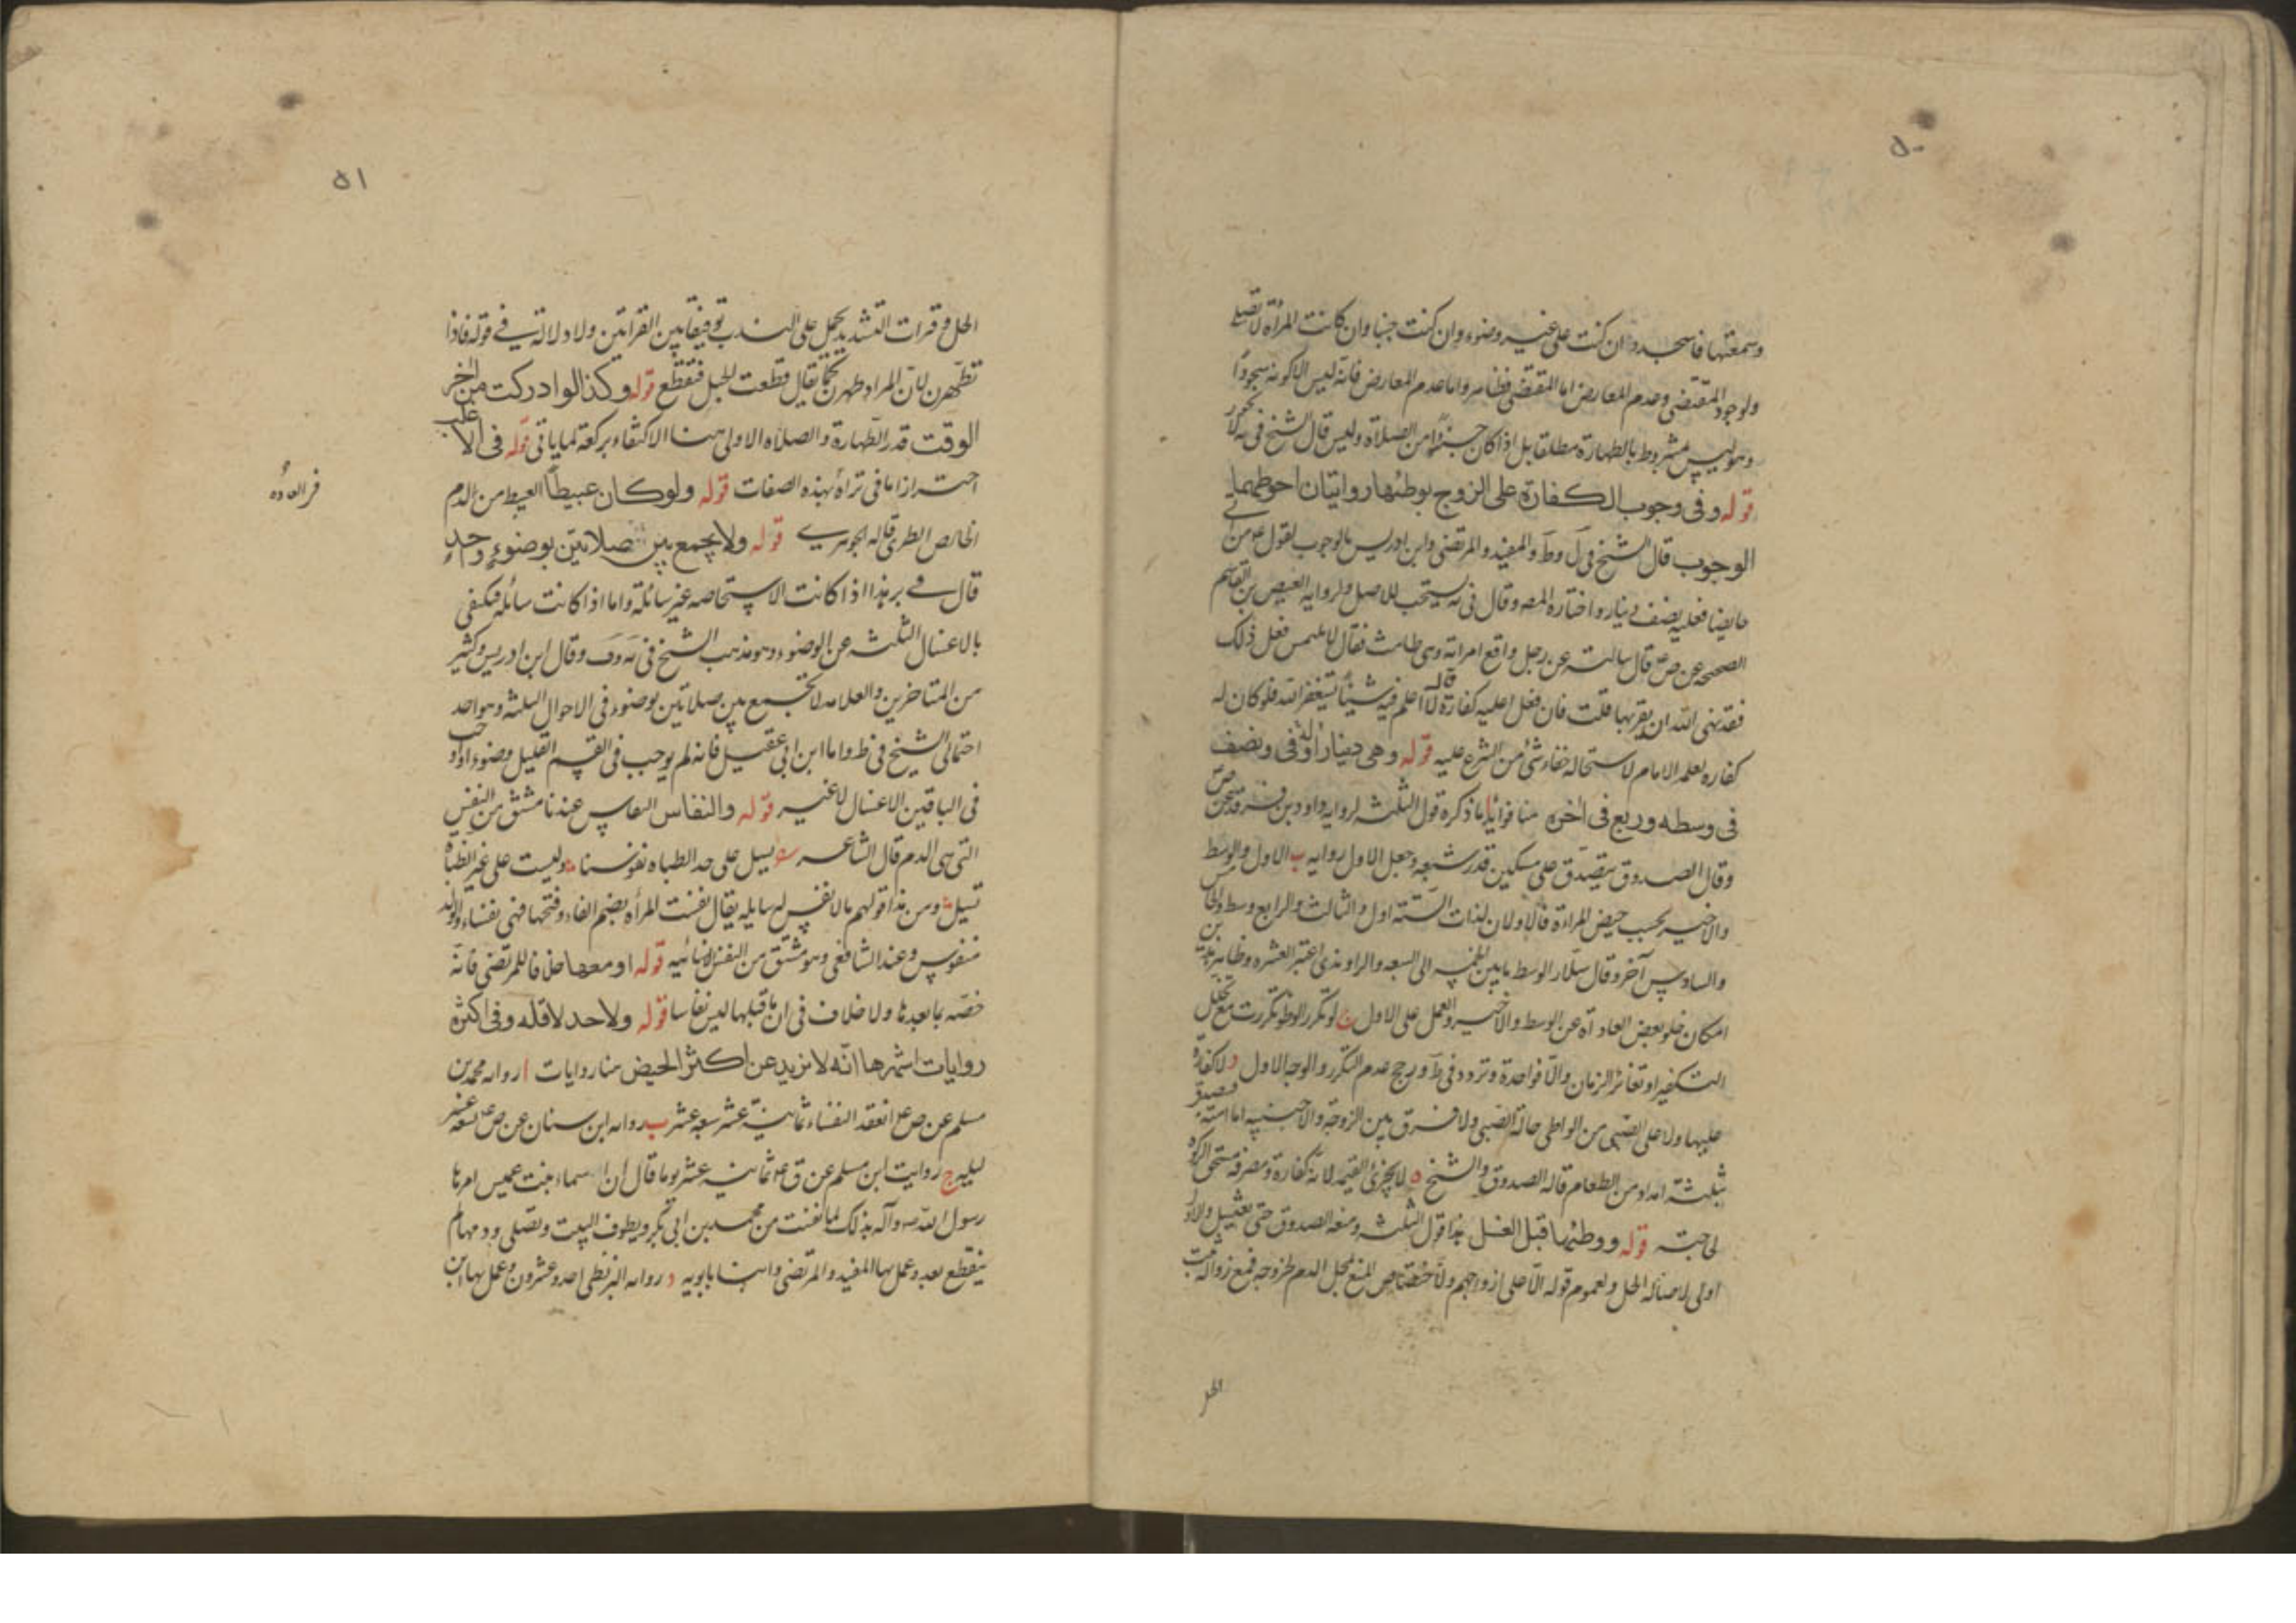 ٥٠
وسمعتها فاسجد وان كنت على غير وضوء وان كنت جنبا وان كانت المرأة لا تصلي
ولوجود المقتضى وعدم المعارض اما المقتضى فظاهر واما عدم المعارض فانه ليس الا كونه سجودا
وهو ليس مشروط بالطهارة مطلقا بل اذا كان جزءا من الصلاة وليس قال الشيخ في يه لا يجوز
قوله وفي وجوب الكفارة على الزوج بوطئها روايتان احوطهما
الوجوب قال الشيخ في ل وط والمفيد والمرتضى وابن ادريس بالوجوب لقول ع من اتى
حايضا فعليه نصف دينار واختاره المصه وقال في يه يستحب للاصل ولرواية العيص بن القاسم
الصحيحه عن ص ع قال سالته عن رجل واقع امراته وهي طامث فقال لا يلتمس فعل ذلك
فقد نهى الله ان يقربها قلت فان فعل اعليه كفارة قال لا اعلم فيه شيئا يستغفر الله فلو كان له
كفاره لعلمه الامام لاستحالة خفاء شئ من الشرع عليه قوله وهي دينار في اوله ونصف
في وسطه وربع في اخره هنا فوائد ا ما ذكره قول الثلثه لروايه داود بن فرقد عن ص
وقال الصدوق يتصدق على مسكين قدر شبعه وجعل الاول روايه ب الاول والوسط
والاخير بحسب حيض المراءة فالاولان لذات الستة اول والثالث والرابع وسط والخامس
والسادس آخر وقال سلار الوسط ما بين الخمسه الى السبعه والراوندي اعتبر العشره
امكان خلو بعض العاداة عن الوسط والاخير والعمل على الاول ج لو تكرر الوطؤ تكررت مع تخلل
التكفير او تغائر الزمان والا فواحدة وتردد في ط ورجح عدم التكرر والوجه الاول د لا كفارة
عليها ولا على الصبي من الواطي حالة الصبى ولا فرق بين الزوجة والاجنبيه اما امته فيصدق
بثلثة امداد من الطعام قاله الصدوق والشيخ ه لا يجزئ القيمه لانه كفارة ومصرفه مستحق الزكوة
لحاجته قوله ووطئها قبل الغسل هذا قول الثلثه ومنعه الصدوق حتى تغتسل والاول
اولى لاصالة الحل ولعموم قوله الا على ازواجهم ولاختصاص المنع بمحل الدم لخروجه فمع زواله يثبت
الحل
٥١
الحل وقرات التشديد يحمل على الندب توفيقا بين القراتين ولا دلالة في قوله فاذا
تطهرن لان المراد طهرن كما يقال قطعت الحبل فتقطع قوله وكذا لو ادركت من اخر
الوقت قدر الطهارة والصلاة الاولى هنا الاكتفاء بركعة لما ياتي قوله في الاغلب
احترازا ما في تراه بهذه الصفات قوله ولو كان عبيطا العبيط من الدم
الخالص الطري قاله الجوهري قوله ولا يجمع بين صلاتين بوضوء واحد
قال في بر هذا اذا كانت الاستحاضه غير سائلة واما اذا كانت سائله فيكفي
بالاغسال الثلثه عن الوضوء وهو مذهب الشيخ في يه وف وقال ابن ادريس وكثير
من المتاخرين والعلامه لا تجمع بين صلاتين بوضوء في الاحوال الثلثه وهو احد
احتمالي الشيخ في ط واما ابن ابي عقيل فانه لم يوجب في القسم القليل وضوءا واوجب
في الباقين الاغسال لا غير قوله والنفاس النفاس عندنا مشتق من النفس
التي هي الدم قال الشاعر تسيل على حد الظباه نفوسنا وليست على غير الظباة
تسيل ومن هذا قولهم ما لا نفس له سايله يقال نفست المرأه بضم الفاء وفتحها فهي نفساء والولد
منفوس وعند الشافعي وهو مشتق من النفس الانسانيه قوله او معها خلافا للمرتضى فانه
خصه بما بعدها ولا خلاف في ان ما قبلها ليس نفاسا قوله ولا حد لاقله وفي اكثره
روايات اشهرها انه لا يزيد عن اكثر الحيض هنا روايات ا رواه محمد بن
مسلم عن ص ع اتقعد النفساء ثمانية عشر سبعه عشر ب رواه ابن سنان عن ص ع تسعه عشر
ليله ج روايت ابن مسلم عن ق ع ثمانيه عشر يوما قال ان اسماء بنت عميس امرها
رسول الله ص وآله بذلك لما نفست من محمد بن ابي بكر ويطوف البيت وتصلى ودمها لم
ينقطع بعد وعمل بها المفيد والمرتضى وابنا بابويه د رواه البزنطي احد وعشرون وعمل بها ابن